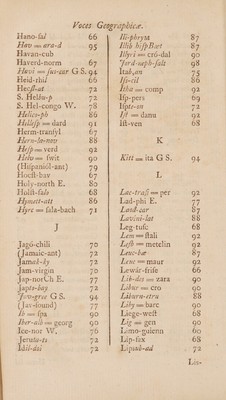 Voces Geographicæ.
Hano-ful 66
Hav = ara-d 95
Havan-cub
Haverd-norm 67
Havi = jus-eur G S. 94
Heid-thul 66
Hecst-at 72
S. Helfu-p 72
S. Hel-congo W. 78
Helics-ph 86
Hellesp = dard 91
Herm-tranfyl 67
Hern-lo=nev 88
Hesp = verd 92
Hebo = swit 90
(Hispaniol-ant) 79
Hocst-bav 67
Holy-north E. 80
Hulst-fuls 68
Hymett-att 86
Hyrc = sala-bach 71
J
Jago-chili 70
(Jamaic-ant) 72
Jamak-by 72
Jam-virgin 70
Jap-norCh E. 77
Japte-bay 72
Jav-gros G S. 94
(Jav-sound) 77
Ib = spa 90
Iber-alb = georg 90
Ice-nor W. 76
Jerutu-ts 72
Idil-doi 72
Ili-phryst 87
Illib hispBæt 87
Illyri = cró-dal 90
Jord-saph-salt 98
Itab,an 75
Iss-cil 86
Itha = comp 92
Isp-pers 69
Ispte-an 72
Ist = danu 92
Ist-ven 68
K
Kitt = ita G S. 94
Lac-trass = per 92
Lad-phi E. 77
Laud-car 87
Lavini-lat 88
Leg-tusc 68
Lem = stali 92
Lesb = metelin 92
Leuc-bœ 87
Leuc = maur 92
Lewar-frise 66
Lib-des = zara 90
Libur = cro 90
Liburn-etru 88
Liby = barc 90
Liege-west 68
Lig = gen 90
Limo-guienn 60
Lip-sex 68
Lipsub-ad 72
Lis-